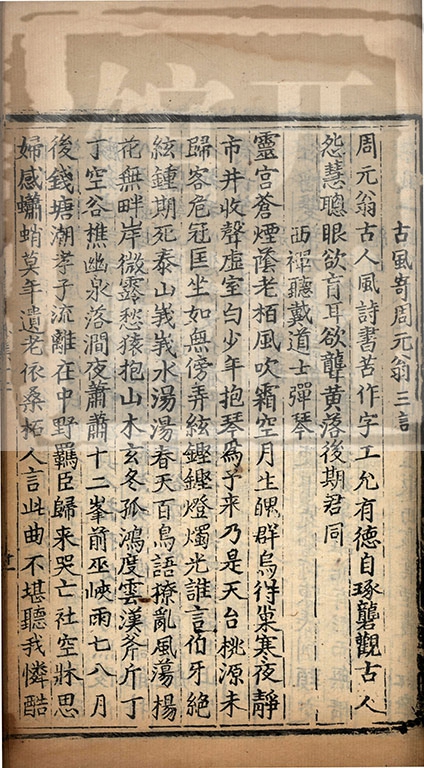 古風寄周元翁三言
周元翁古人風詩書苦作字工允有德自琢礱觀古人
怨慧聰眼欲盲耳欲聾黄落後期君同
西禪聽戴道士彈琴
靈宫蒼煙蔭老栢風吹霜空月生魄群烏得巢寒夜靜
市井收聲虚室白少年抱琴爲予来乃是天台桃源未
歸客危冠匡坐如無傍弄絃鏗鏗燈燭光誰言伯牙絶
絃鍾期死泰山峩峩水湯湯春天百鳥語撩亂風蕩楊
花無畔岸微霧愁猿抱山木玄冬孤鴻度雲漢斧斤丁
丁空谷樵幽泉落澗夜蕭蕭十二峯前巫峽雨七八月
後錢塘潮孝子流離在中野羈臣歸来哭亡社空牀思
婦感蠨蛸莫年遺老依桑柘人言此曲不堪聽我憐酷